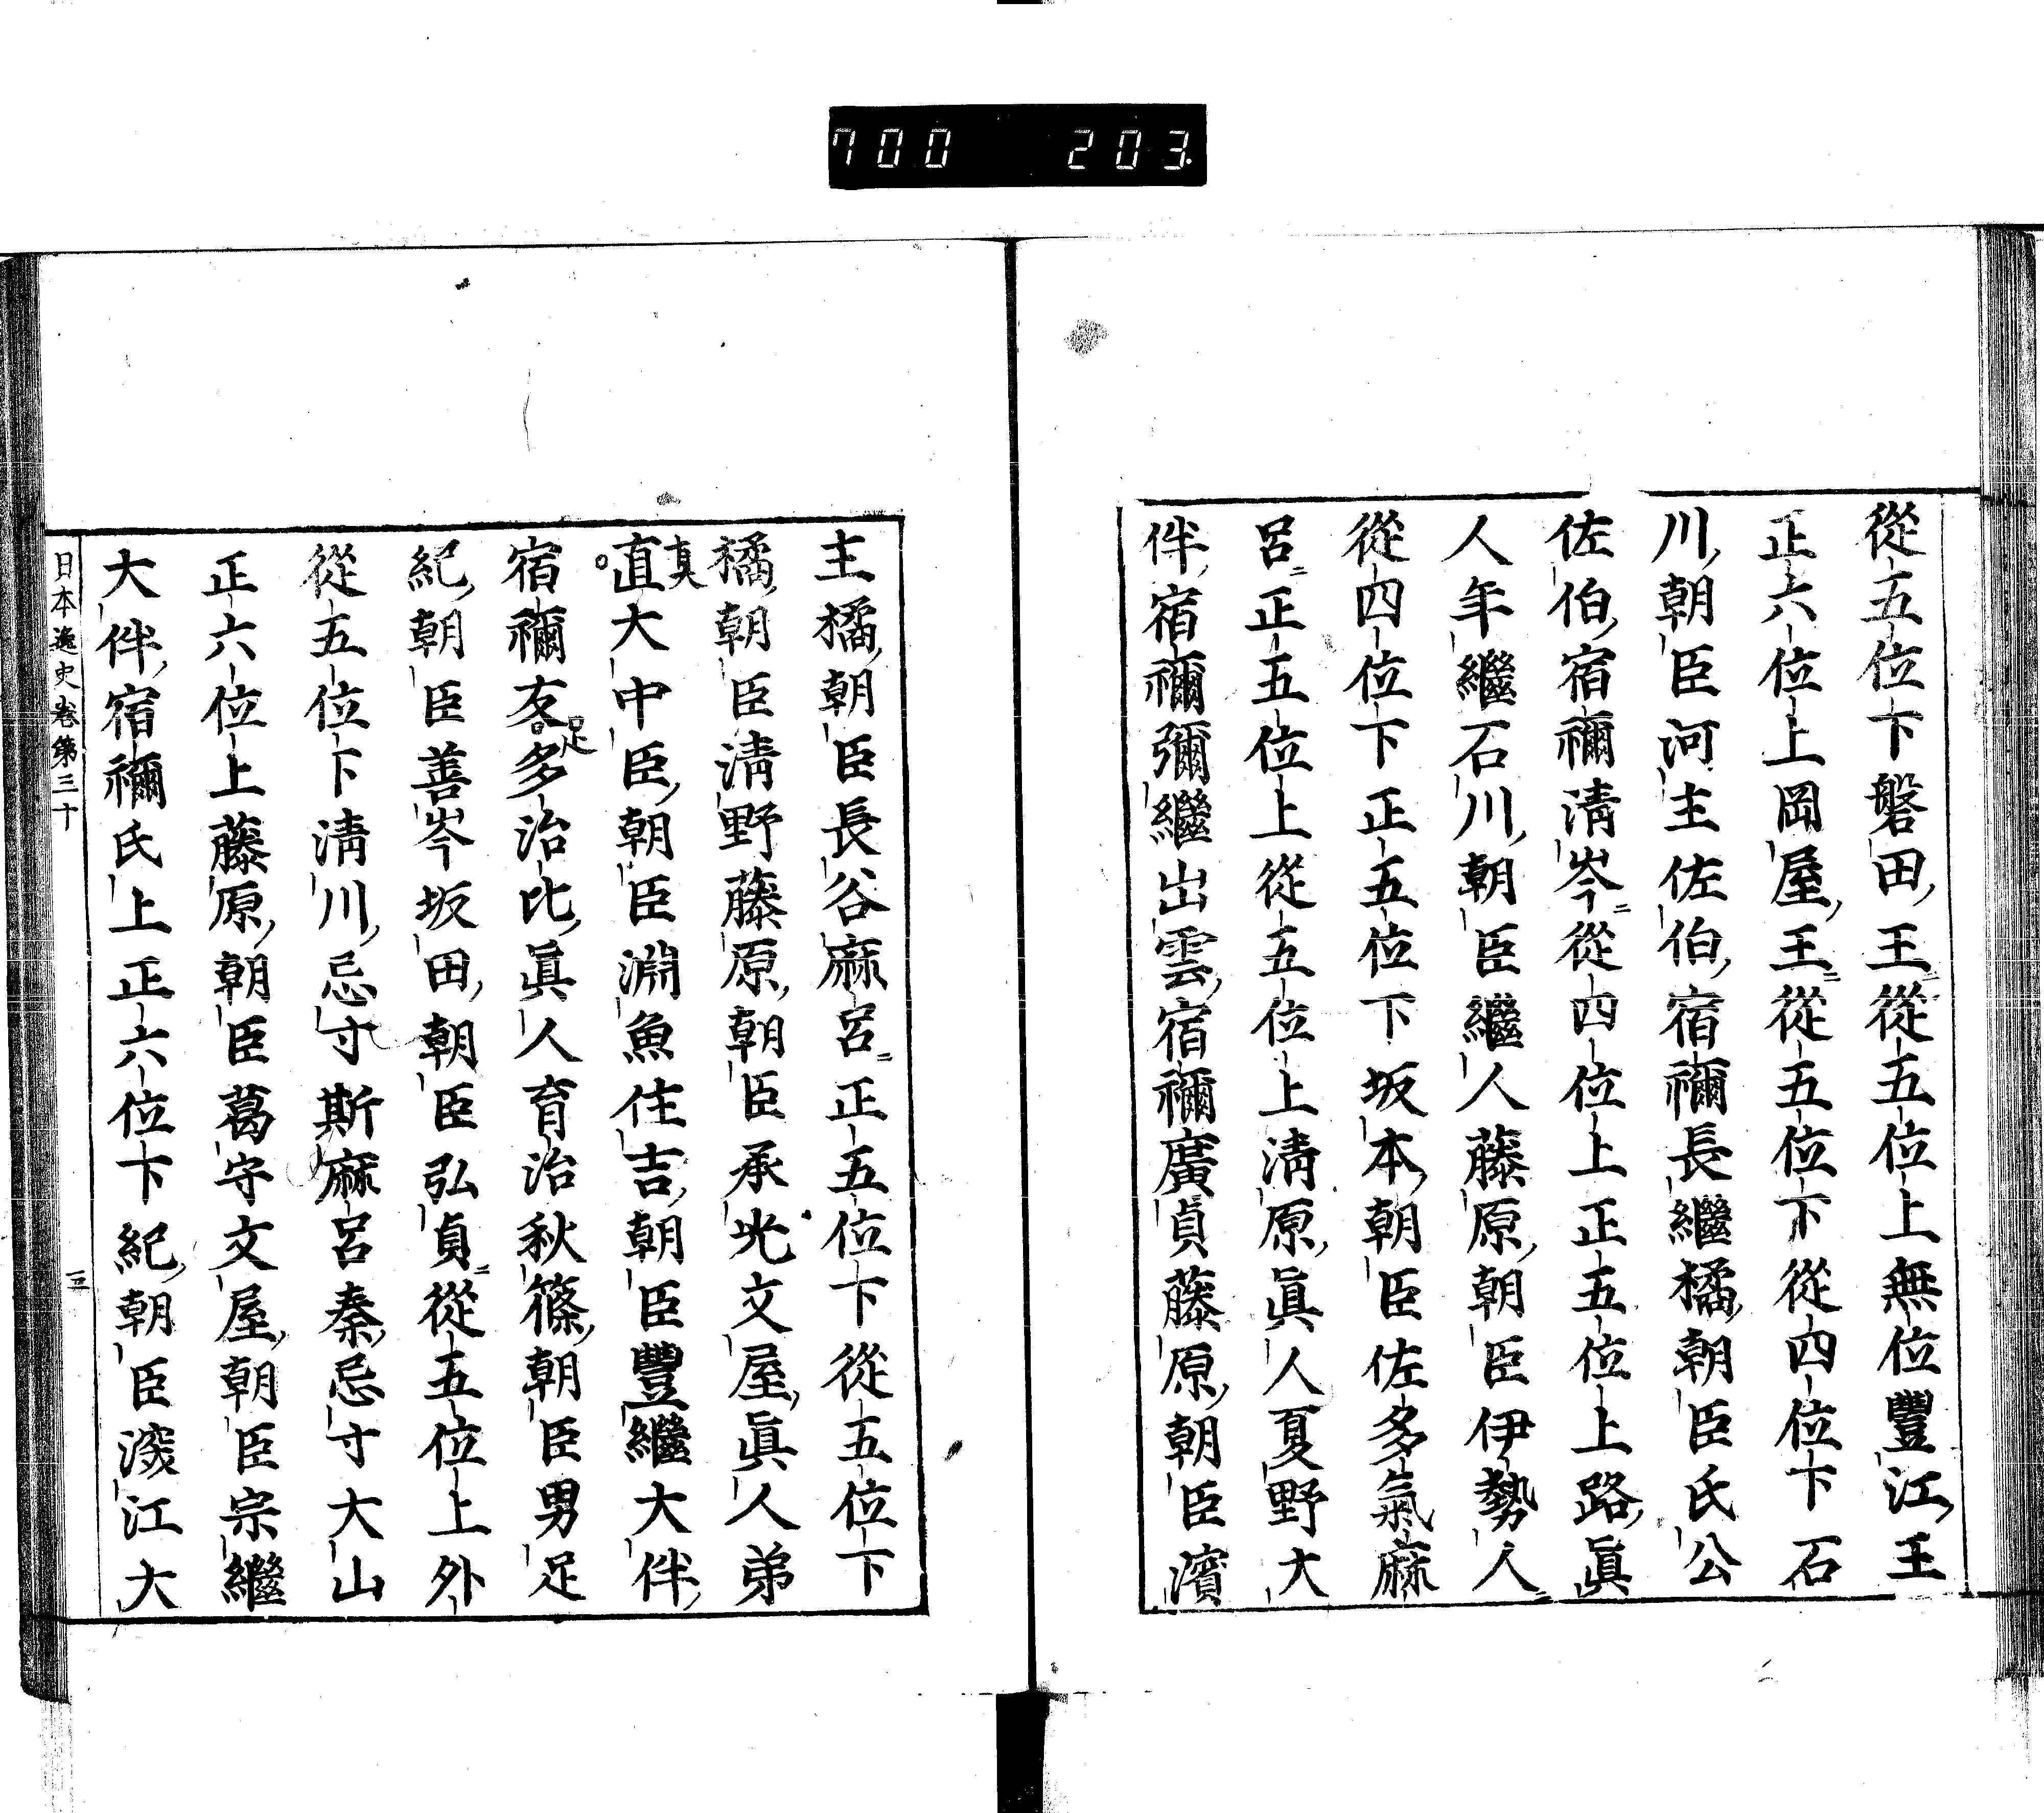 700 203
從五位下磐田王從五位上無位豐江王
正六位上岡屋王從五位下從四位下石
川朝臣河主佐伯宿禰長繼橘朝臣氏公
佐伯宿禰清岑從四位上正五位上路眞
人年繼石川朝臣繼人藤原朝臣伊勢人
從四位下正五位下坂本朝臣佐多氣麻
呂正五位上從五位上清原眞人夏野大
伴宿禰彌繼出雲宿禰廣貞藤原朝臣濱
主橘朝臣長谷麻呂正五位下從五位下
橘朝臣清野藤原朝臣承之文屋眞人弟
直大中臣朝臣淵魚住吉朝臣豐繼大伴
眞
宿禰友多治比眞人育治秋篠朝臣男足
足
紀朝臣善岑坂田朝臣弘貞從五位上外
從五位下清川忌寸斯麻呂秦忌寸大山
正六位上藤原朝臣葛守文屋朝臣宗繼
大伴宿禰氏上正六位下紀朝臣深江大
日本逸史卷第三十
三